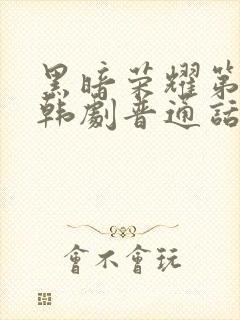 黑暗荣耀第
韩剧普通话
會不會玩